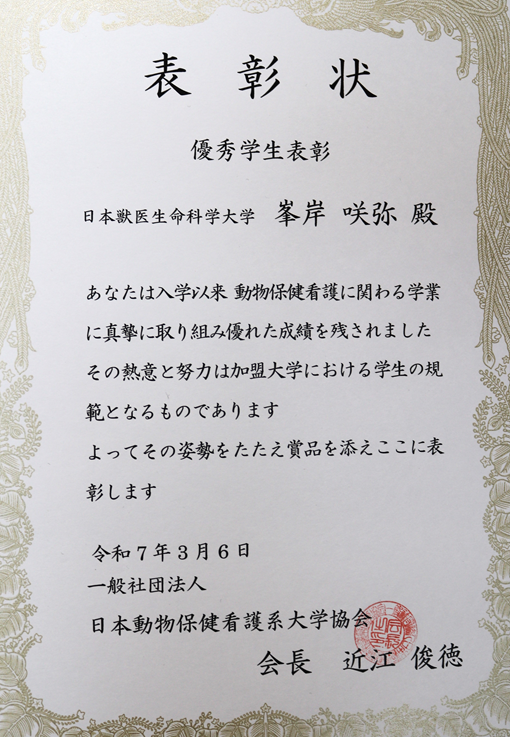 表彰状
優秀学生表彰
日本獣医生命科学大学 峯岸 咲弥 殿
あなたは入学以来 動物保健看護に関わる学業
に真摯に取り組み優れた成績を残されました
その熱意と努力は加盟大学における学生の規
範となるものであります
よってその姿勢をたたえ賞品を添えここに表
彰します
令和7年3月6日
一般社団法人
日本動物保健看護系大学協会
会長 近江 俊徳